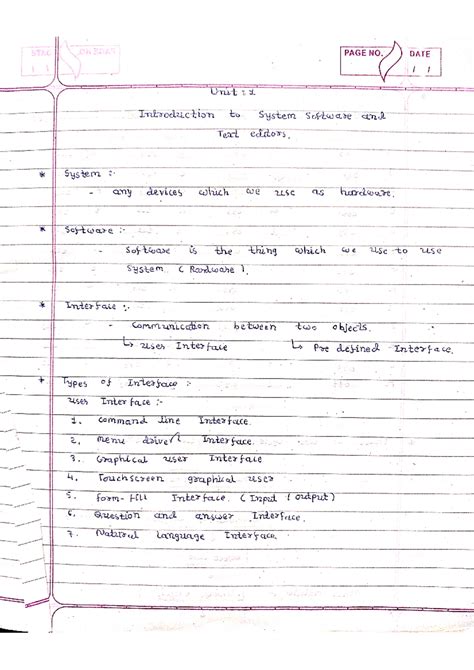 PAGE NO.
DATE
/ /
Unit : 1
Introduction to System Software and
Text editors.
* System :-
- any devices which we use as hardware.
* Software :-
- Software is the thing which we use to use
System ( Hardware ).
* Interface :-
- Communication between two objects.
↳ uses Interface ↳ Pre defined Interface.
* Types of Interface :-
uses Interface :-
1. Command line Interface.
2. Menu drive Interface.
3. Graphical user Interface
4. Touchscreen graphical user
5. form-fill Interface. ( Input / output )
6. Question and answer Interface.
7. Natural language Interface.